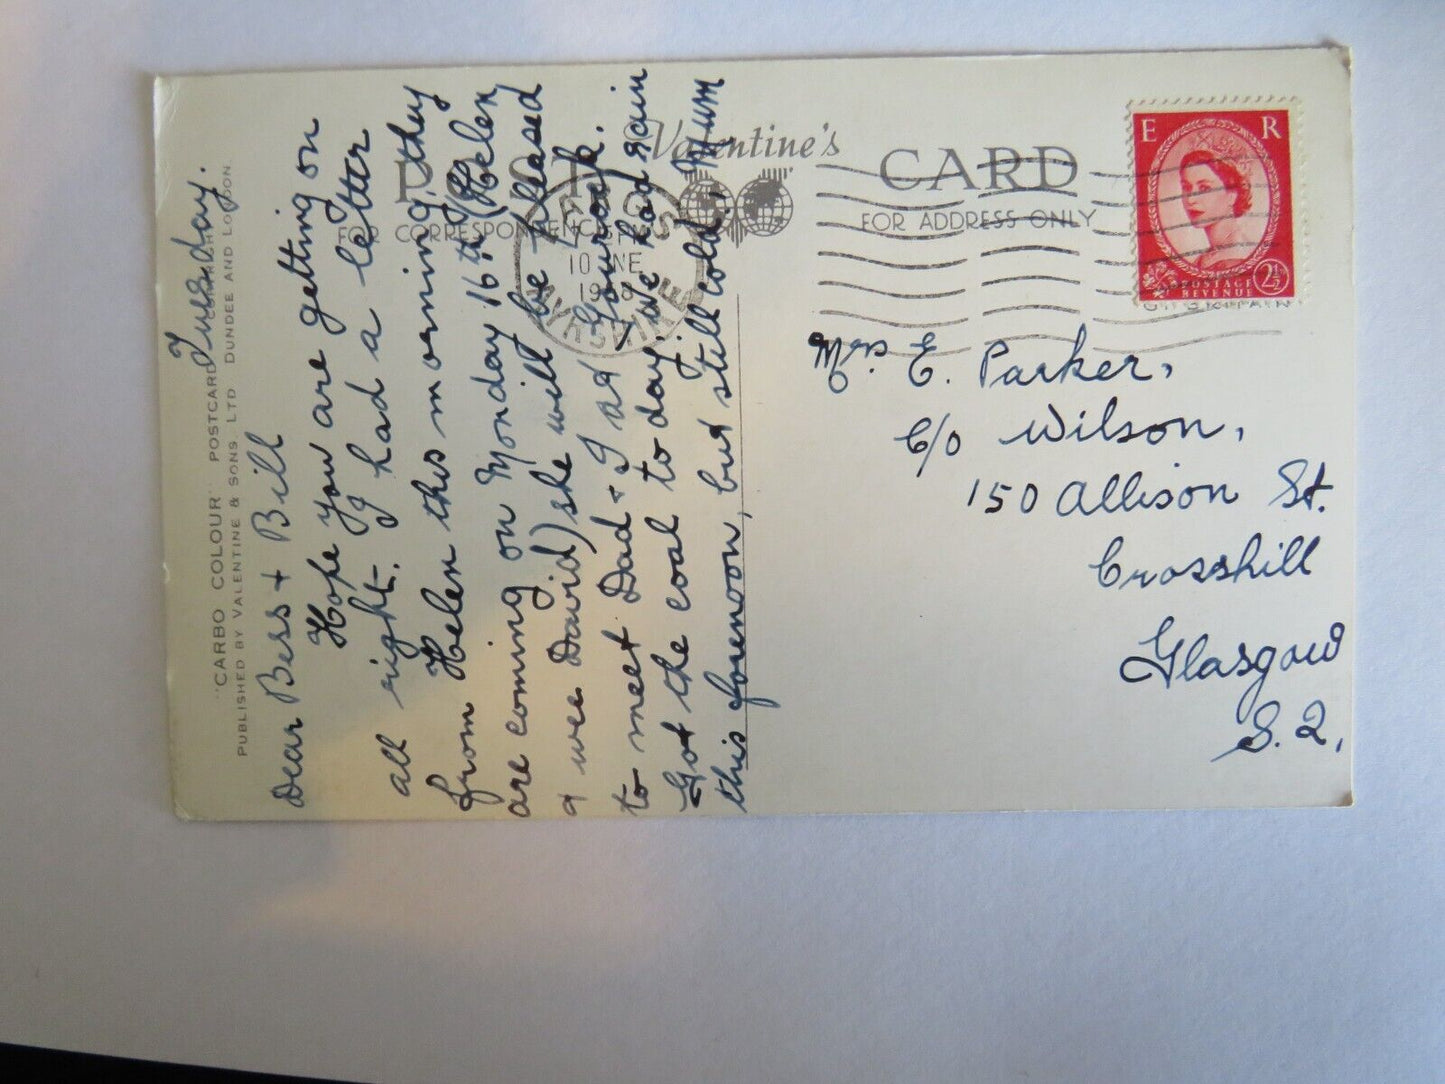 "CARBO COLOUR" POSTCARD
PUBLISHED BY VALENTINE & SONS LTD DUNDEE AND LONDON
Tuesday.
Dear Bess + Bill
Hope you are getting on
all right. I had a letter
from Helen this morning, they
are coming on Monday 16th (Helen
& wee David) she will be pleased
to meet Dad & I at Gourock.
Got the coal to day, we had rain
this forenoon, but still cold, Mum
Valentine's
POST CARD
FOR CORRESPONDENCE
FOR ADDRESS ONLY
LARGS
10 JNE
1958
AYRSHIRE
E R
POSTAGE
REVENUE
2½
Mrs E. Parker,
C/o Wilson,
150 Allison St.
Crosshill
Glasgow
S.2,